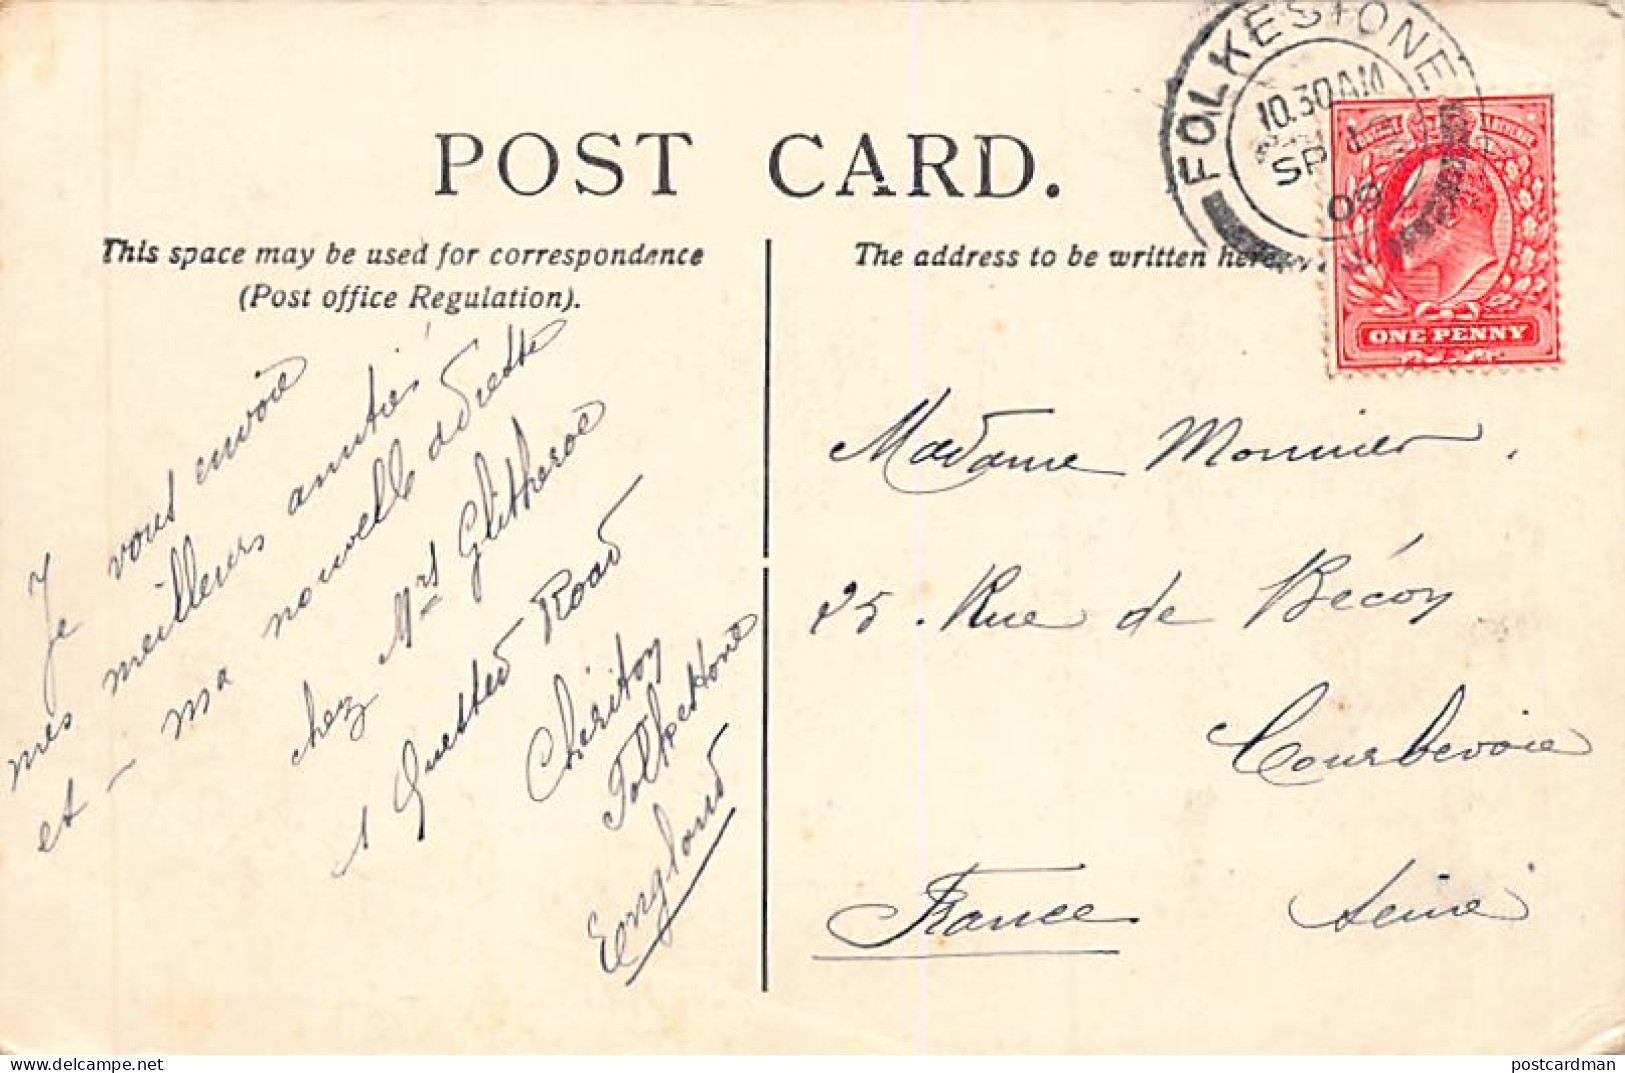 POST CARD.
This space may be used for correspondence
(Post office Regulation).
The address to be written here
FOLKESTONE
10.30 AM
SP
09
ONE PENNY
Je vous envoie
mes meilleurs amitiés
et - ma nouvelle adresse
chez Mrs Glitheroe
1 Quested Road
Chériton
Folkestone
England
Madame Monnier.
25. Rue de Bécon
Courbevoie
Seine
France
postcardman